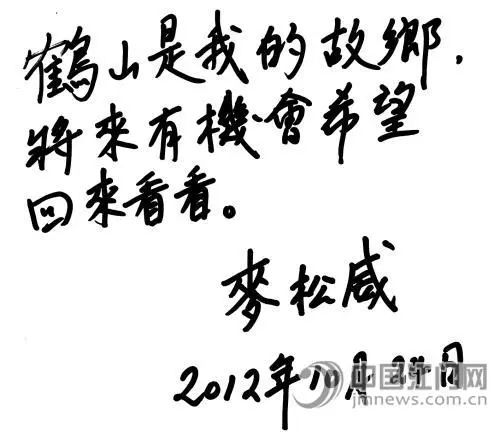 鶴山是我的故鄉,
將來有機會希望
回來看看。
麥松威
2012年10月24日
中国江门网
jmnews.com.cn